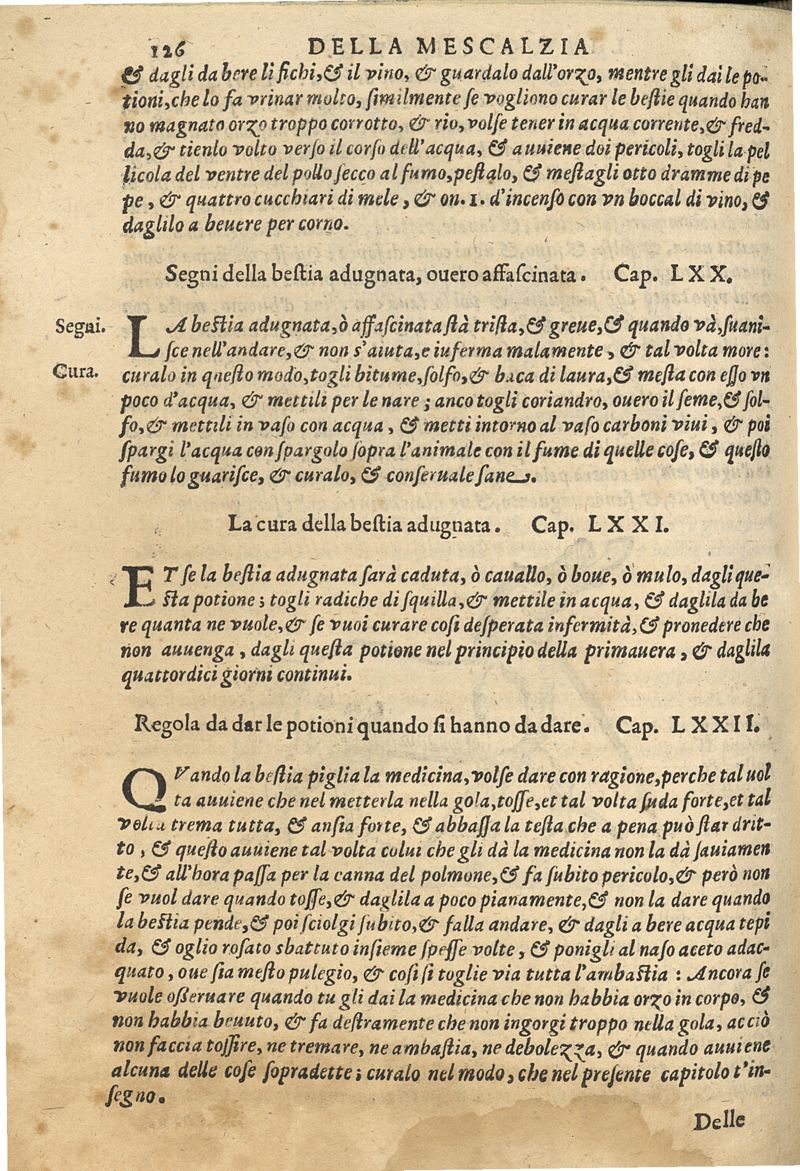 126 DELLA MESCALZIA
& dagli da bere li fichi, & il vino, & guardalo dall'orzo, mentre gli dai le po-
tioni, che lo fa vrinar molto, similmente se vogliono curar le bestie quando han
no magnato orzo troppo corrotto, & rio, volse tener in acqua corrente, & fred-
da, & tienlo volto verso il corso dell'acqua, & auuiene doi pericoli, togli la pel
licola del ventre del pollo secco al fumo, pestalo, & mestagli otto dramme di pe
pe, & quattro cucchiari di mele, & on. 1. d'incenso con vn boccal di vino, &
daglilo a beuere per corno.
Segni della bestia adugnata, ouero affascinata. Cap. LXX.
Segni.
LA bestia adugnata, ò affascinata stà trista, & greue, & quando và, suani-
sce nell'andare, & non s'aiuta, e iuferma malamente, & tal volta more:
Cura.
curalo in questo modo, togli bitume, solfo, & baca di laura, & mesta con esso vn
poco d'acqua, & mettili per le nare; anco togli coriandro, ouero il seme, & sol-
fo, & mettili in vaso con acqua, & metti intorno al vaso carboni viui, & poi
spargi l'acqua con spargolo sopra l'animale con il fume di quelle cose, & questo
fumo lo guarisce, & curalo, & conseruale sane.
La cura della bestia adugnata. Cap. LXXI.
ET se la bestia adugnata sarà caduta, ò cauallo, ò boue, ò mulo, dagli que-
sta potione; togli radiche di squilla, & mettile in acqua, & daglila da be
re quanta ne vuole, & se vuoi curare cosi desperata infermità, & pronedere che
non auuenga, dagli questa potione nel principio della primauera, & daglila
quattordici giorni continui.
Regola da dar le potioni quando si hanno da dare. Cap. LXXII.
QVando la bestia piglia la medicina, volse dare con ragione, perche tal uol
ta auuiene che nel metterla nella gola, tosse, et tal volta suda forte, et tal
volta trema tutta, & ansia forte, & abbassa la testa che a pena può star drit-
to, & questo auuiene tal volta colui che gli dà la medicina non la dà sauiamen
te, & all'hora passa per la canna del polmone, & fa subito pericolo, & però non
se vuol dare quando tosse, & daglila a poco pianamente, & non la dare quando
la bestia pende, & poi sciolgi subito, & falla andare, & dagli a bere acqua tepi
da, & oglio rosato sbattuto insieme spesse volte, & ponigli al naso aceto adac-
quato, oue sia mesto pulegio, & cosi si toglie via tutta l'ambastia: Ancora se
vuole osseruare quando tu gli dai la medicina che non habbia orzo in corpo, &
non habbia beuuto, & fa destramente che non ingorgi troppo nella gola, acciò
non faccia tossire, ne tremare, ne ambastia, ne debolezza, & quando auuiene
alcuna delle cose sopradette; curalo nel modo, che nel presente capitolo t'in-
segno.
Delle